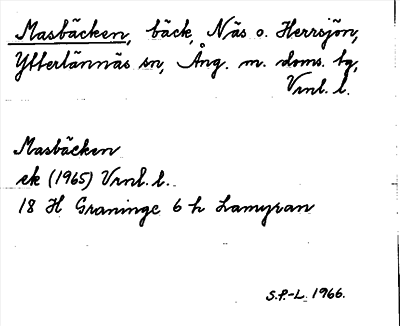 Masbäcken, bäck, Näs o. Herrsjön,
Ytterlännäs sn, Ång. m. doms. tg,
Vrnl. l.
Masbäcken
ek (1965) Vrnl. l.
18 H Graninge 6 h Lamyran
S.P.-L. 1966.